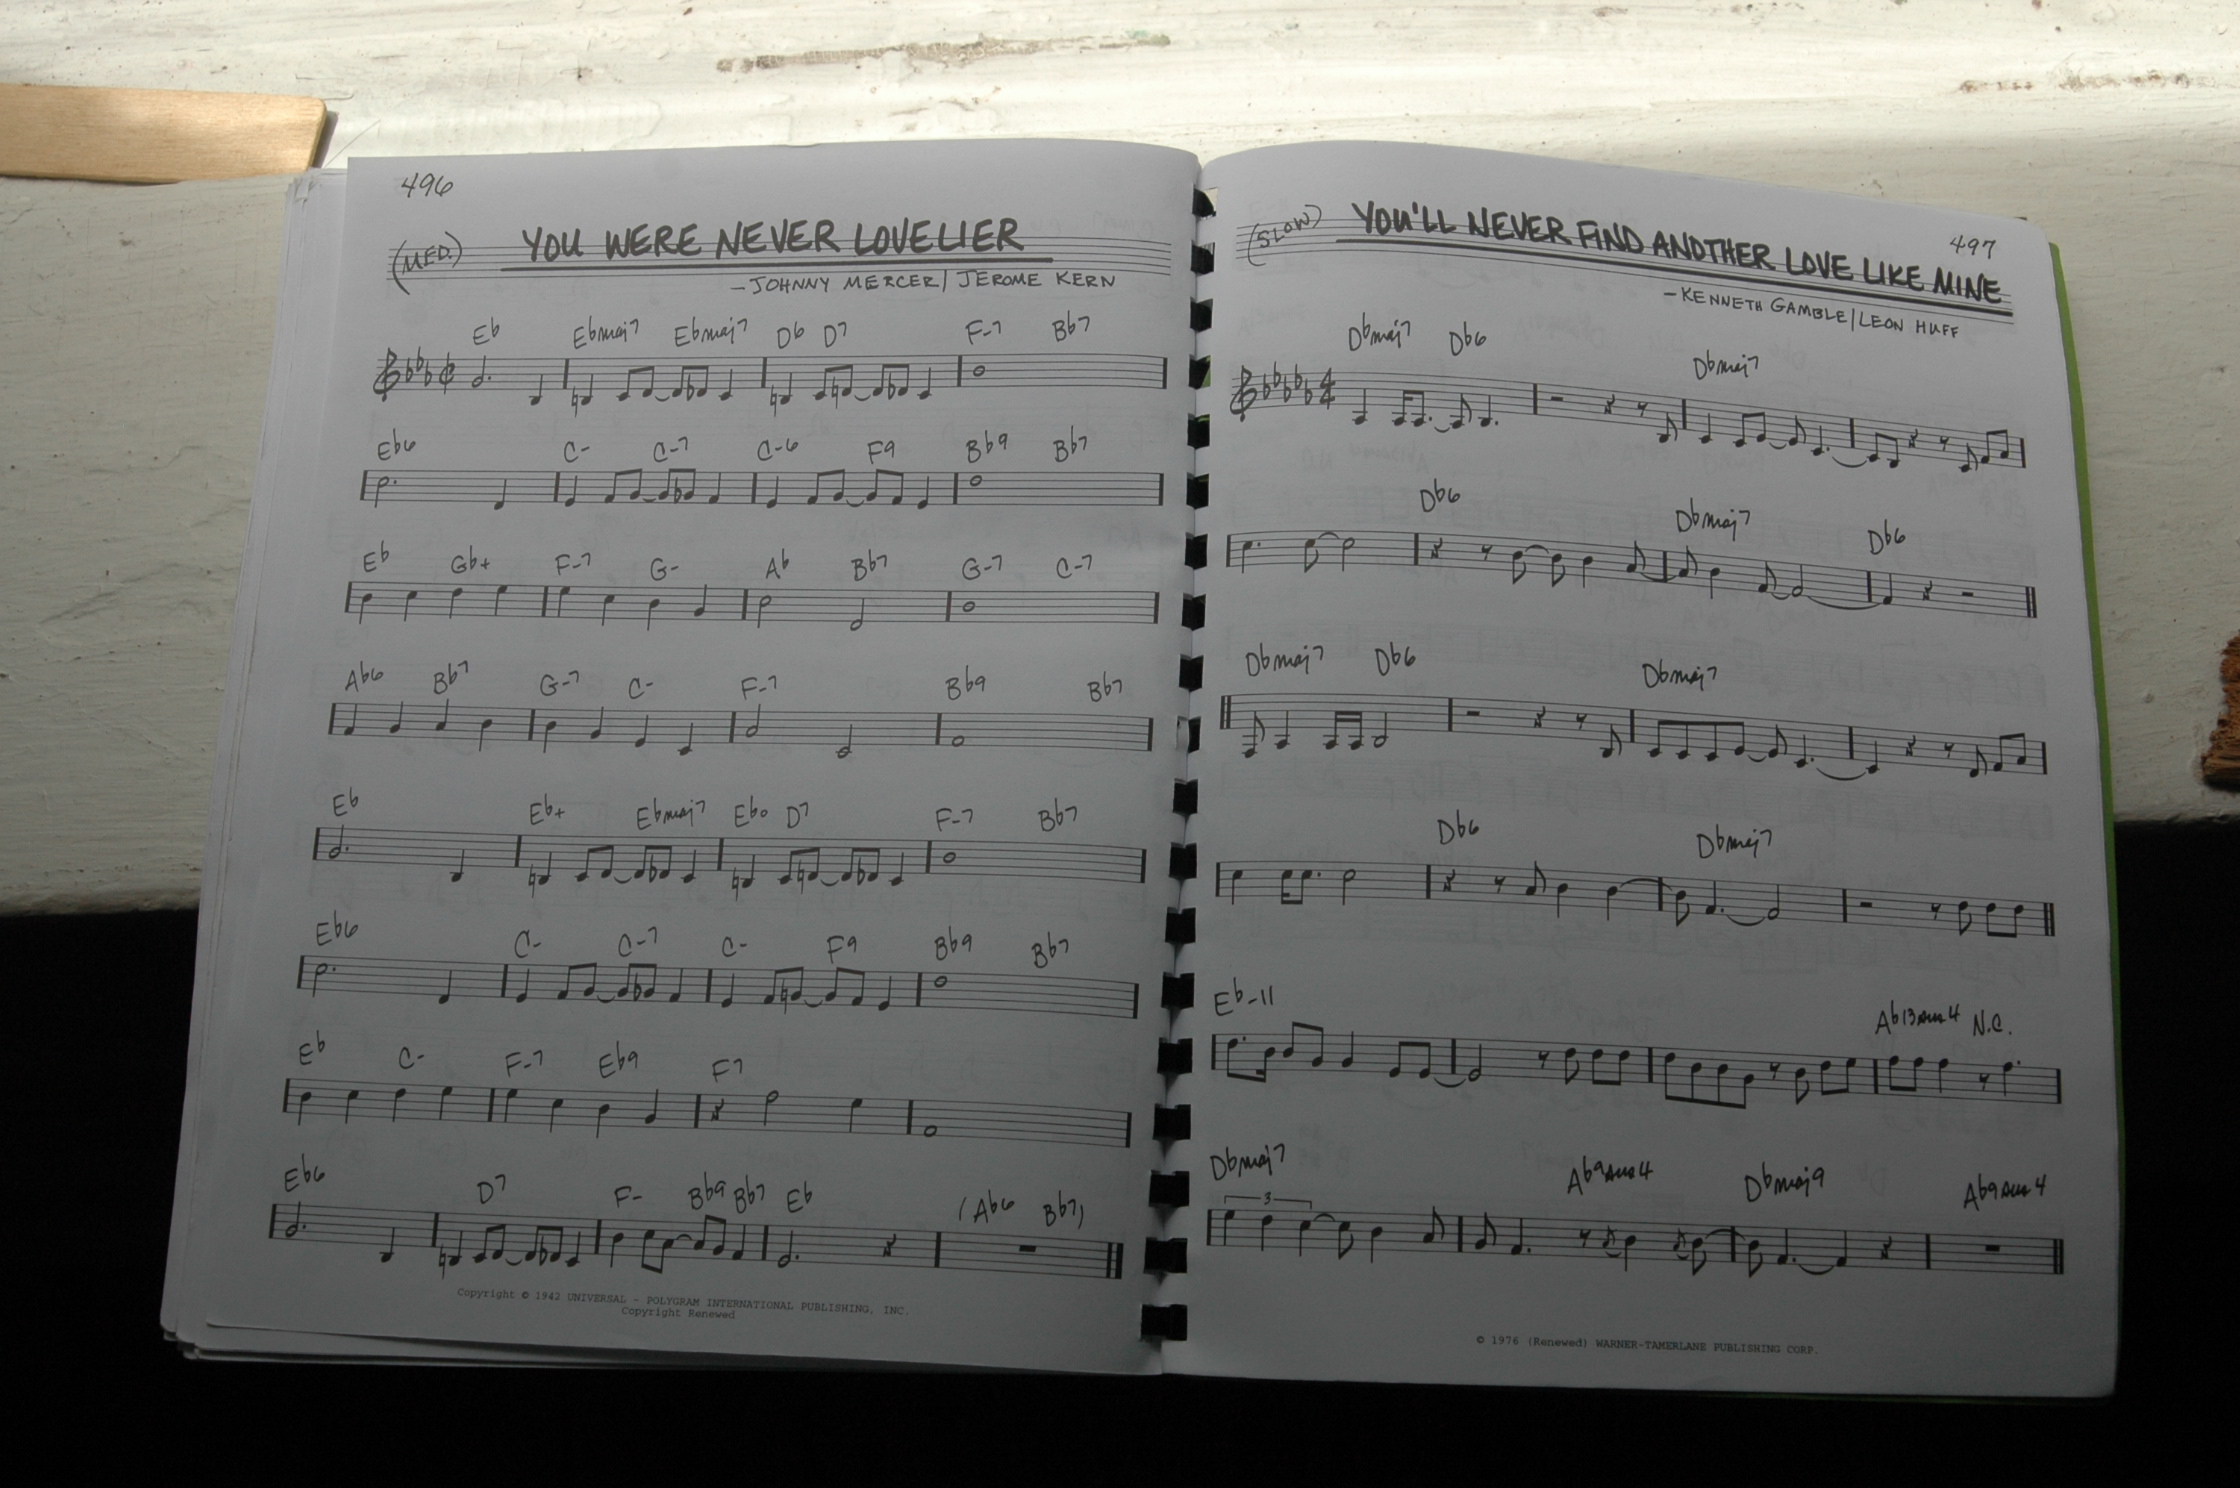 496
YOU WERE NEVER LOVELIER
(MED.)
—JOHNNY MERCER/JEROME KERN
Eb Ebmaj7 Ebmaj7 D6 D7 F-7 Bb7
Eb6 C- C-7 C-6 F9 Bb9 Bb7
Eb Gb+ F-7 G- Ab Bb7 G-7 C-7
Ab6 Bb7 G-7 C- F-7 Bb9 Bb7
Eb Eb+ Ebmaj7 Ebo D7 F-7 Bb7
Eb6 C- C-7 C- F9 Bb9 Bb7
Eb C- F-7 Eb9 F7
Eb6 D7 F- Bb9 Bb7 Eb (Ab6 Bb7)
Copyright © 1942 UNIVERSAL - POLYGRAM INTERNATIONAL PUBLISHING, INC.
Copyright Renewed
(SLOW)
YOU'LL NEVER FIND ANOTHER LOVE LIKE MINE
497
—KENNETH GAMBLE/LEON HUFF
Dbmaj7 Db6 Dbmaj7
4
4
Db6 Dbmaj7 Db6
Dbmaj7 Db6 Dbmaj7
Db6 Dbmaj7
Eb-11 Ab13sus4 N.C.
Dbmaj7 Ab9sus4 Dbmaj9 Ab9sus4
3
© 1976 (Renewed) WARNER-TAMERLANE PUBLISHING CORP.